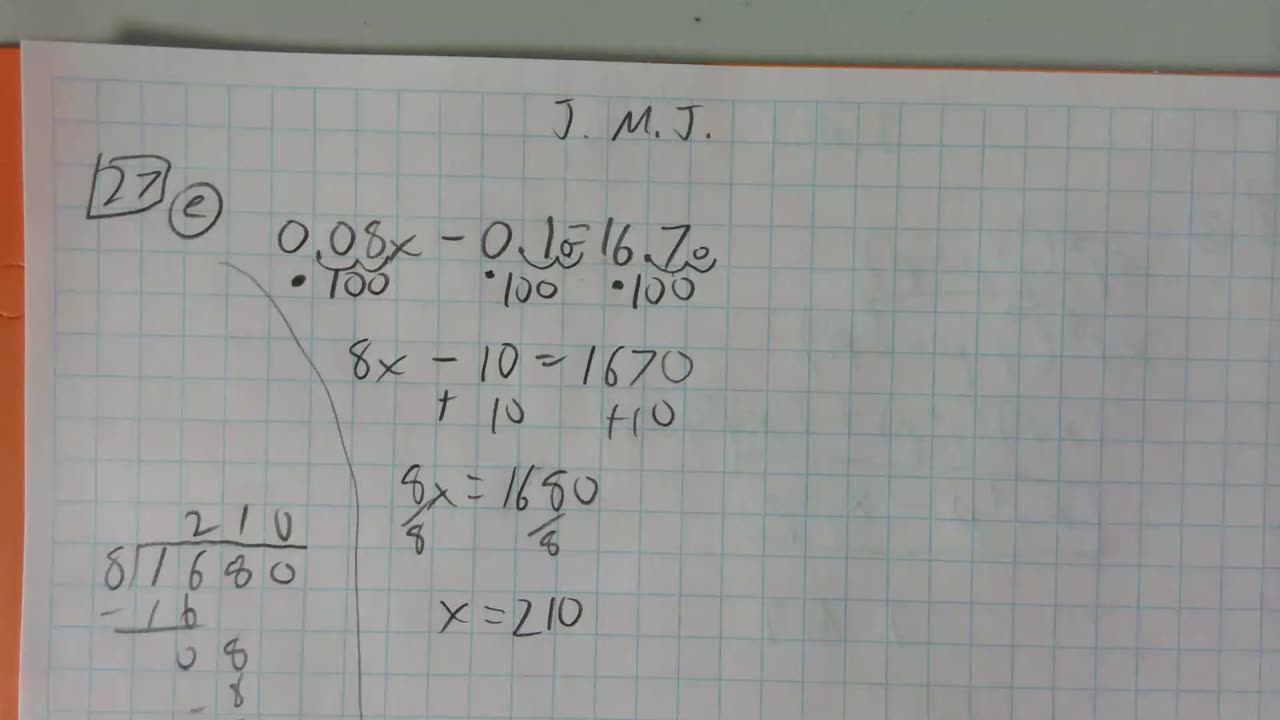 J. M. J.
27 e
0.08x - 0.10 = 16.70
•100 •100 •100
8x - 10 = 1670
+ 10 +10
8x = 1680
/8 /8
x = 210
210
8 1680
- 16
08
- 8